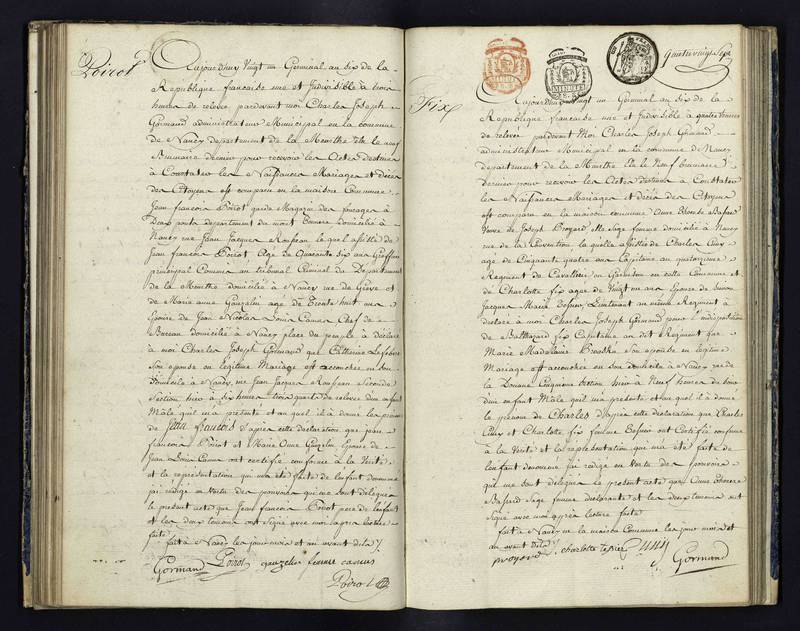 Poirot
Aujourdhuy Vingt un Germinal an six de la
République francaise une et Indivisible à trois
heures de relevée pardevant moi Charles Joseph
Gormand administrateur Municipal en la commune
de Nancy departement de la Meurthe élu le neuf
Brumaire dernier pour recevoir les Actes destinés
à Constater les Naissances Mariages et Décès
des Citoyens est comparu en la maison Commune
Jean francois Poirot garde Magazin des fourages à
departement du mont Tonnere domicilié à
Nancy rue Jean Jacques Rousseau lequel assisté de
Jean francois Poirot Agé de Quarante six ans Greffier
principal Commis au tribunal Criminel du Departement
de la Meurthe domicilié à Nancy rue de Grève et
de Marie anne Gauzelin agée de Trente huit ans
Epouse de Jean Nicolas Louis Camus Chef de
Bureau domicilié à Nancy place du peuple à déclaré
à moi Charles Joseph Gormand que Catherine Lefebvre
Son epouse en légitime Mariage est accouchée en son
domicile à Nancy rue Jean Jacques Rousseau Seconde
Section hier à six heures trois quarts de relevée d'un enfant
Mâle quil m'a présenté et auquel il à donné les prénoms
de Jean francois d'après cette declaration que Jean
francois Poirot et Marie Anne Gauzelin Epouse de
Jean Louis Camus ont certifié conforme à la Vérité
et la représentation qui m'a été faite de l'enfant denommé
j'ai rédigé en Vertu des pouvoirs qui me sont délégués
le présent acte que Jean francois Poirot pere de l'enfant
et les deux témoins ont Signé avec moi après lecture
faite
fait à Nancy les jour mois et an avant dits
Gormand Poirot gauzelin femme camus
Poirot
quatrevingt Sept
Fix
Aujourdhuy Vingt un Germinal an six de la
République francaise une et Indivisible à quatre heures
de relevée pardevant Moi Charles Joseph Gormand
administrateur Municipal en la commune de Nancy
departement de la Meurthe élu le Neuf brumaire
dernier pour recevoir les Actes destinés à Constater
les Naissances Mariages et décès des Citoyens
est comparue en la maison commune Anne
Veuve de Joseph Broyard elle Sage femme domiciliée à Nancy
rue de la Convention laquelle assistée de Charles
agé de Cinquante quatre ans Capitaine au quatorzieme
Regiment de Cavallerie en Garnison en cette Commune et
de Charlotte fix agée de Vingt un ans Epouse de
Jacques Marie Lieutenant au même Regiment à
declaré à moi Charles Joseph Gormand pour l'indisposition
de Balthazard fix Capitaine au dit Regiment que
Marie Madelaine Son epouse en legitime
Mariage est accouchée en son domicile à Nancy rue de
la Douane Cinquieme Section hier à Neuf heures du soir
d'un enfant Mâle quil m'a présenté et auquel il à donné
le prénom de Charles d'après cette déclaration que Charles
et Charlotte fix femme ont Certifié conforme
à la Verité et la représentation qui m'a été faite de
l'enfant denommé j'ai rédigé en Vertu des pouvoirs
qui me sont délégués le présent acte que Anne
Sage femme declarante et les deux témoins ont
Signé avec moi après lecture faite
fait à Nancy en la maison Commune les jour mois et
an avant dits
charlotte Gormand